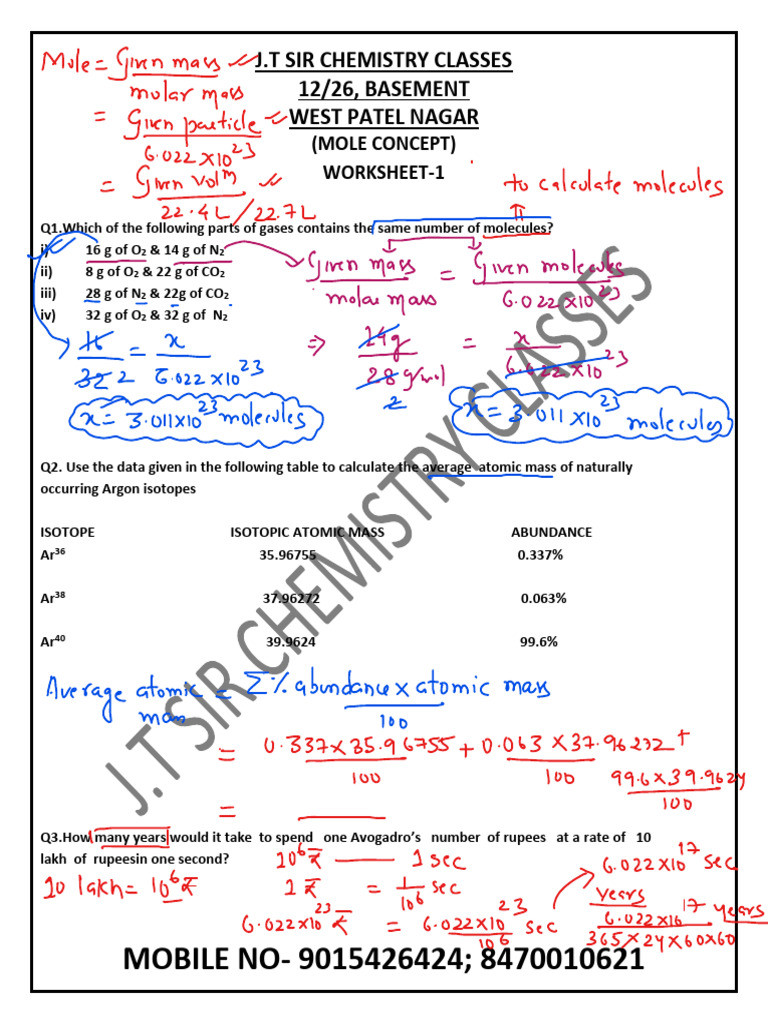 J.T SIR CHEMISTRY CLASSES
12/26, BASEMENT
WEST PATEL NAGAR
(MOLE CONCEPT)
WORKSHEET-1
Mole = Given mass / molar mass
= Given particle / 6.022×10²³
= Given volᵐ / 22.4L / 22.7L
to calculate molecules
Q1.Which of the following parts of gases contains the same number of molecules?
i) 16 g of O₂ & 14 g of N₂
ii) 8 g of O₂ & 22 g of CO₂
iii) 28 g of N₂ & 22g of CO₂
iv) 32 g of O₂ & 32 g of N₂
Given mass / molar mass = Given molecules / 6.022×10²³
16 / 32 2 = x / 6.022×10²³
⇒ 14g / 28 g/mol 2 = x / 6.022×10²³
x = 3.011×10²³ molecules
x = 3.011×10²³ molecules
Q2. Use the data given in the following table to calculate the average atomic mass of naturally
occurring Argon isotopes
ISOTOPE ISOTOPIC ATOMIC MASS ABUNDANCE
Ar³⁶ 35.96755 0.337%
Ar³⁸ 37.96272 0.063%
Ar⁴⁰ 39.9624 99.6%
Average atomic mass = Σ % abundance × atomic mass / 100
= 0.337×35.96755 / 100 + 0.063×37.96232 / 100 + 99.6×39.9624 / 100
=
Q3.How many years would it take to spend one Avogadro's number of rupees at a rate of 10
lakh of rupeesin one second?
10 lakh = 10⁶ ₹
10⁶ ₹ — 1 sec
1 ₹ = 1 / 10⁶ sec
6.022×10²³ ₹ = 6.022×10²³ / 10⁶ sec
6.022×10¹⁷ sec
years
6.022×10¹⁷ / 365×24×60×60 years
MOBILE NO- 9015426424; 8470010621
J.T SIR CHEMISTRY CLASSES